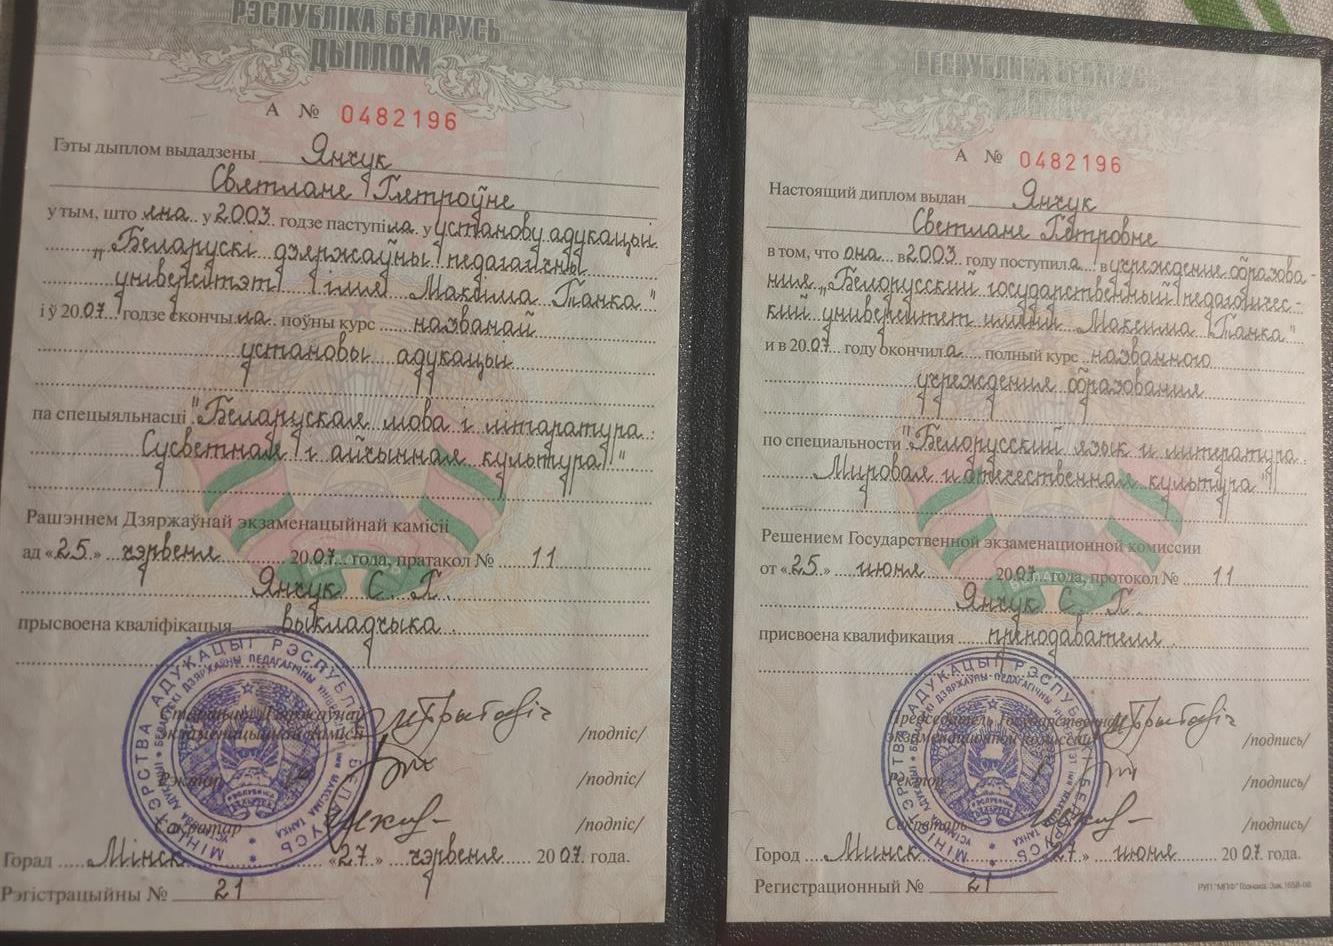 РЭСПУБЛІКА БЕЛАРУСЬ
ДЫПЛОМ
А № 0482196
Гэты дыплом выдадзены Янчук
Святлане Пятроўне
у тым, што яна у 2003 годзе паступіла у установу адукацыі
"Беларускі дзяржаўны педагагічны
універсітэт імя Максіма Танка"
і ў 2007 годзе скончыла поўны курс названай
установы адукацыі
па спецыяльнасці "Беларуская мова і літаратура.
Сусветная і айчынная культура"
Рашэннем Дзяржаўнай экзаменацыйнай камісіі
ад «25» чэрвеня 2007 года, пратакол № 11
Янчук С. П.
прысвоена кваліфікацыя выкладчыка
Старшыня Дзяржаўнай
экзаменацыйнай камісіі /подпіс/
Рэктар /подпіс/
Сакратар /подпіс/
МІНІСТЭРСТВА АДУКАЦЫІ РЭСПУБЛІКІ БЕЛАРУСЬ
Горад Мінск «27» чэрвеня 2007 года.
Рэгістрацыйны № 21
РЕСПУБЛИКА БЕЛАРУСЬ
ДИПЛОМ
А № 0482196
Настоящий диплом выдан Янчук
Светлане Петровне
в том, что она в 2003 году поступила в учреждение образова-
ния "Белорусский государственный педагогичес-
кий университет имени Максима Танка"
и в 2007 году окончила полный курс названного
учреждения образования
по специальности "Белорусский язык и литература.
Мировая и отечественная культура"
Решением Государственной экзаменационной комиссии
от «25» июня 2007 года, протокол № 11
Янчук С. П.
присвоена квалификация преподавателя
Председатель Государственной
экзаменационной комиссии /подпись/
Ректор /подпись/
Секретарь /подпись/
МІНІСТЭРСТВА АДУКАЦЫІ РЭСПУБЛІКІ БЕЛАРУСЬ
Город Минск «27» июня 2007 года.
Регистрационный № 21
РУП "МПФ" Гознака. Зак. 1658-06